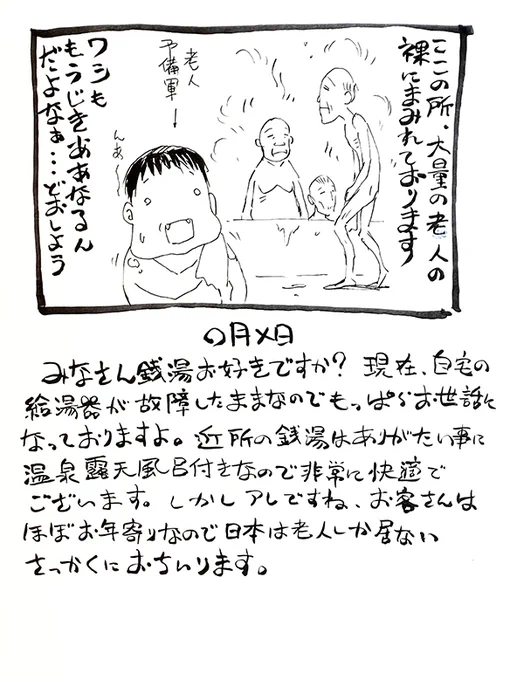 ここの所、大量の老人の
裸にまみれております
老人
予備軍
んあ〜
ワシも
もうじきああなるん
だよなぁ…どおしよう
〇月×日
みなさん銭湯お好きですか?現在、自宅の
給湯器が故障したままなのでもっぱらお世話に
なっておりますよ。近所の銭湯はありがたい事に
温泉露天風呂付きなので非常に快適で
ございます。しかしアレですね、お客さんは
ほぼお年寄りなので日本は老人しか居ない
さっかくにおちいります。